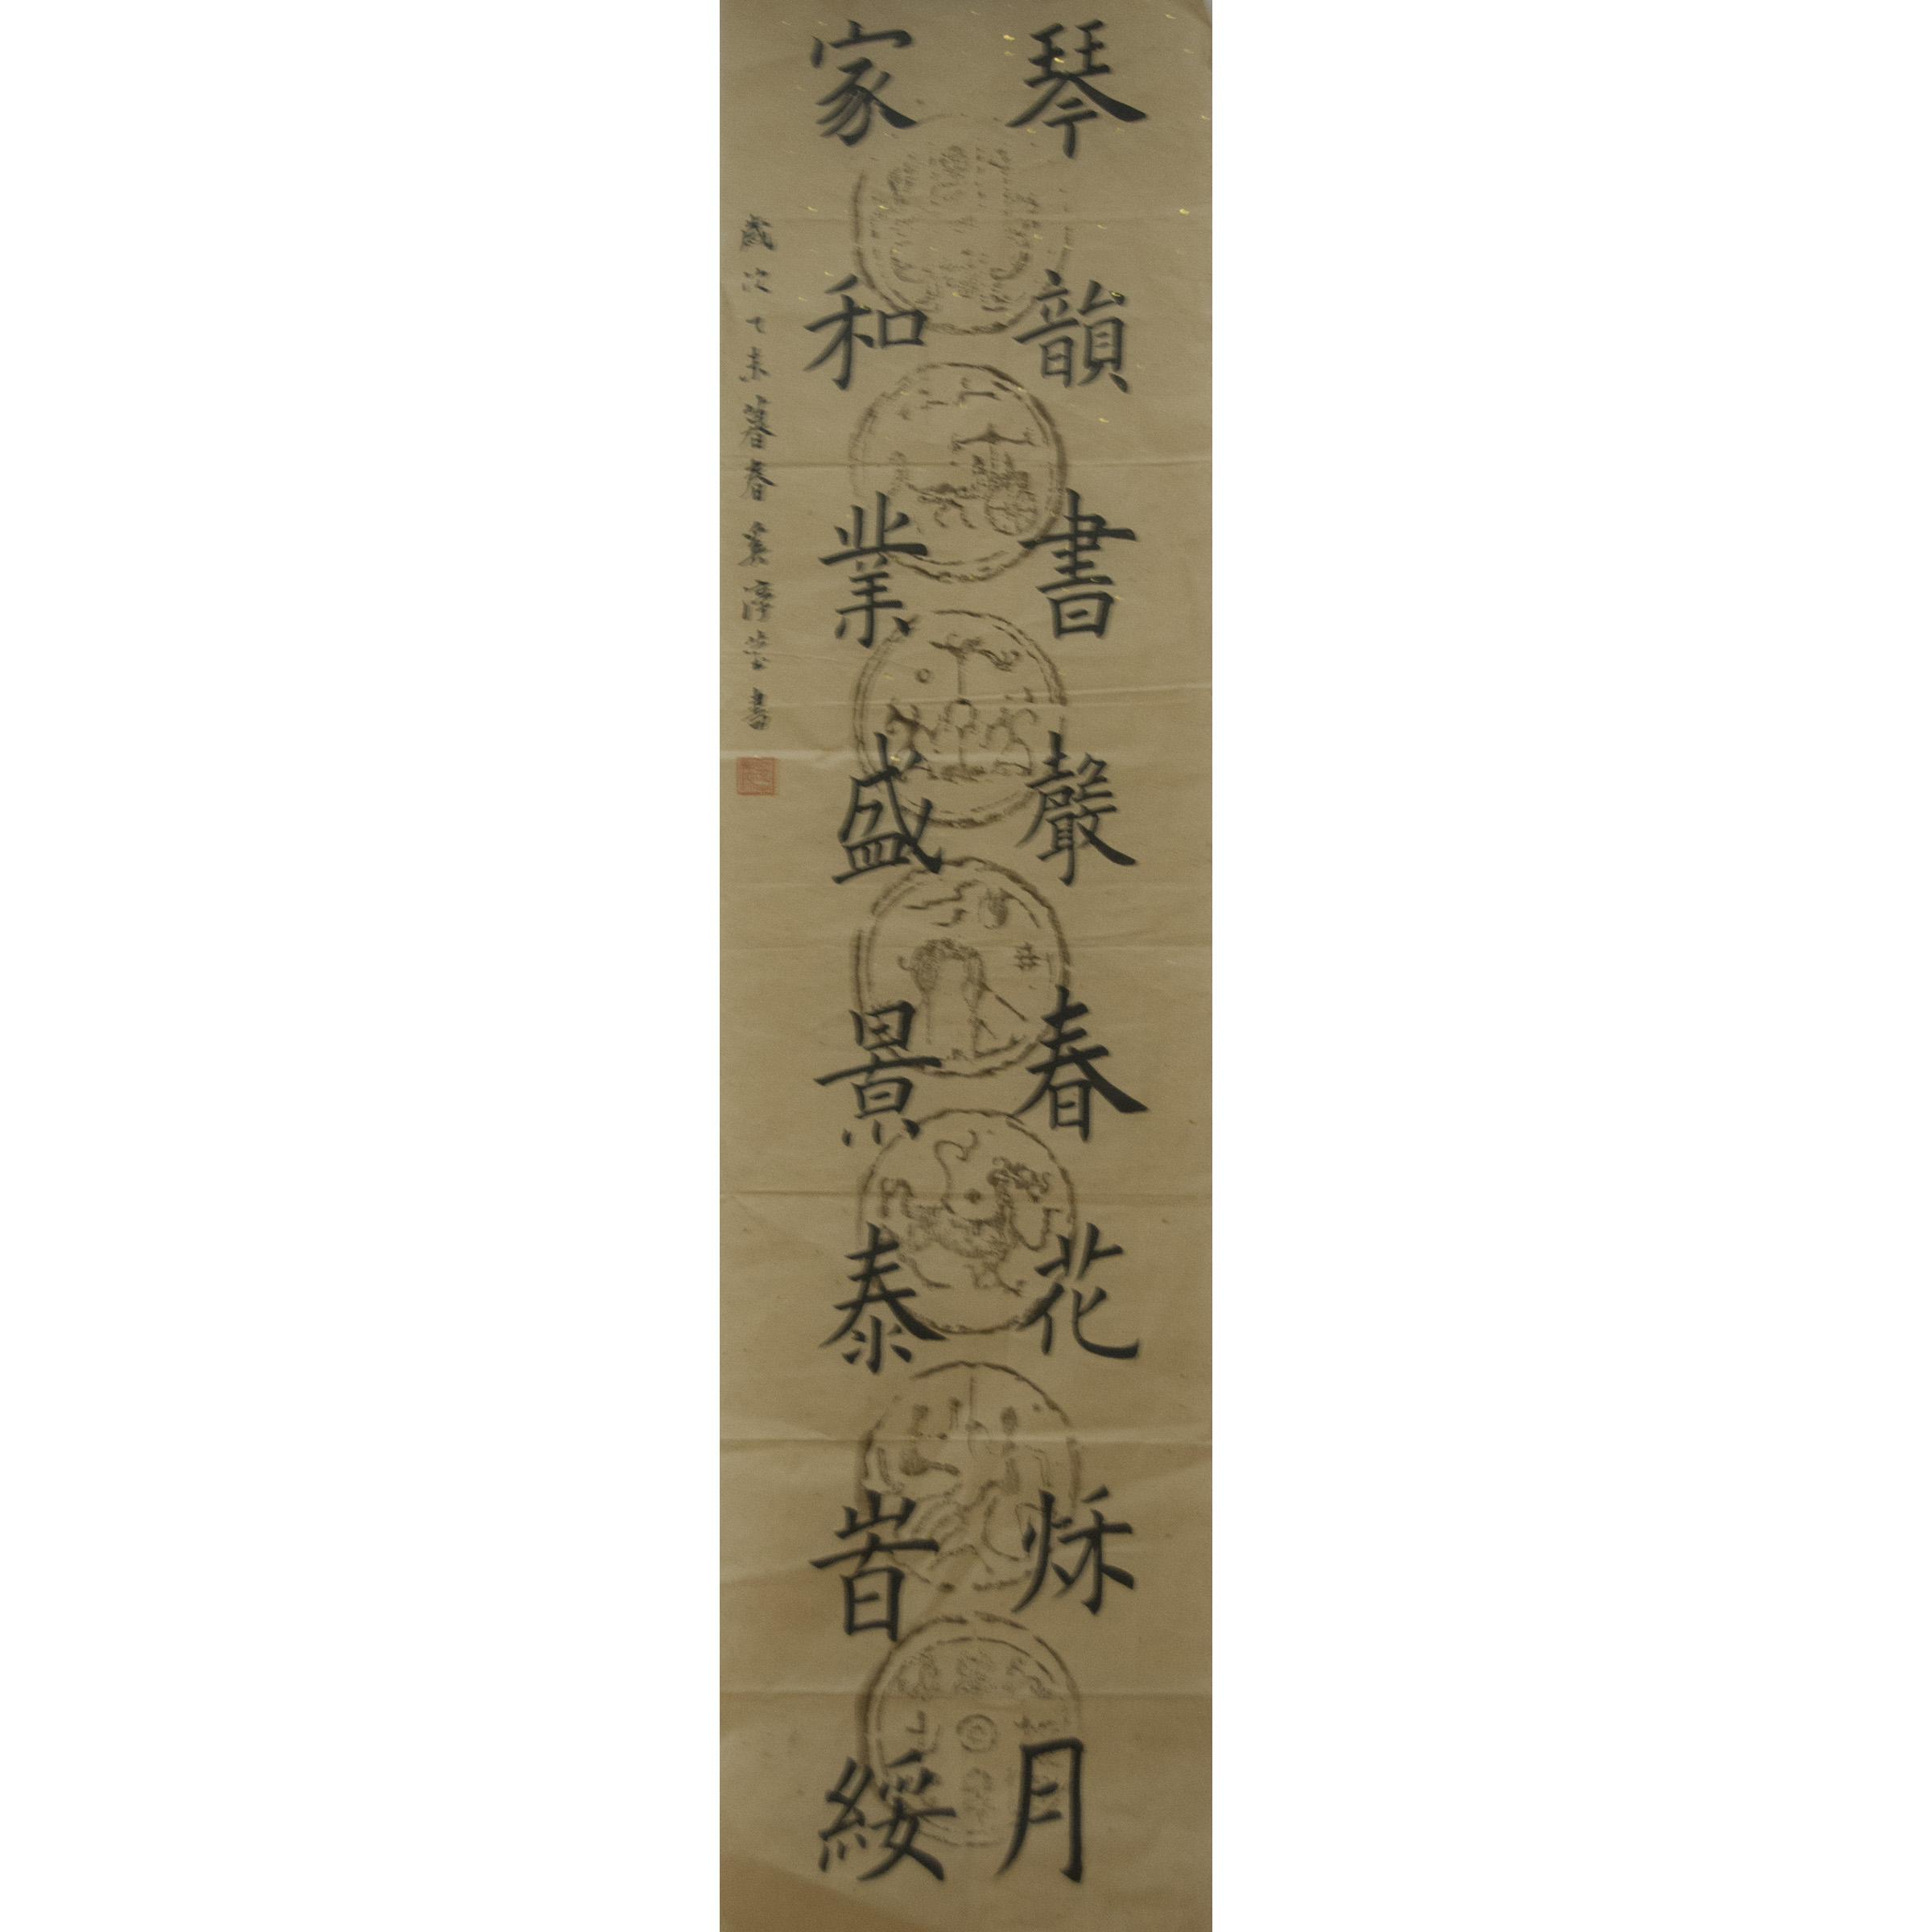 琴韻書聲春花秌月
家和業盛景泰旹綏
歲次乙未暮春吳淳 書